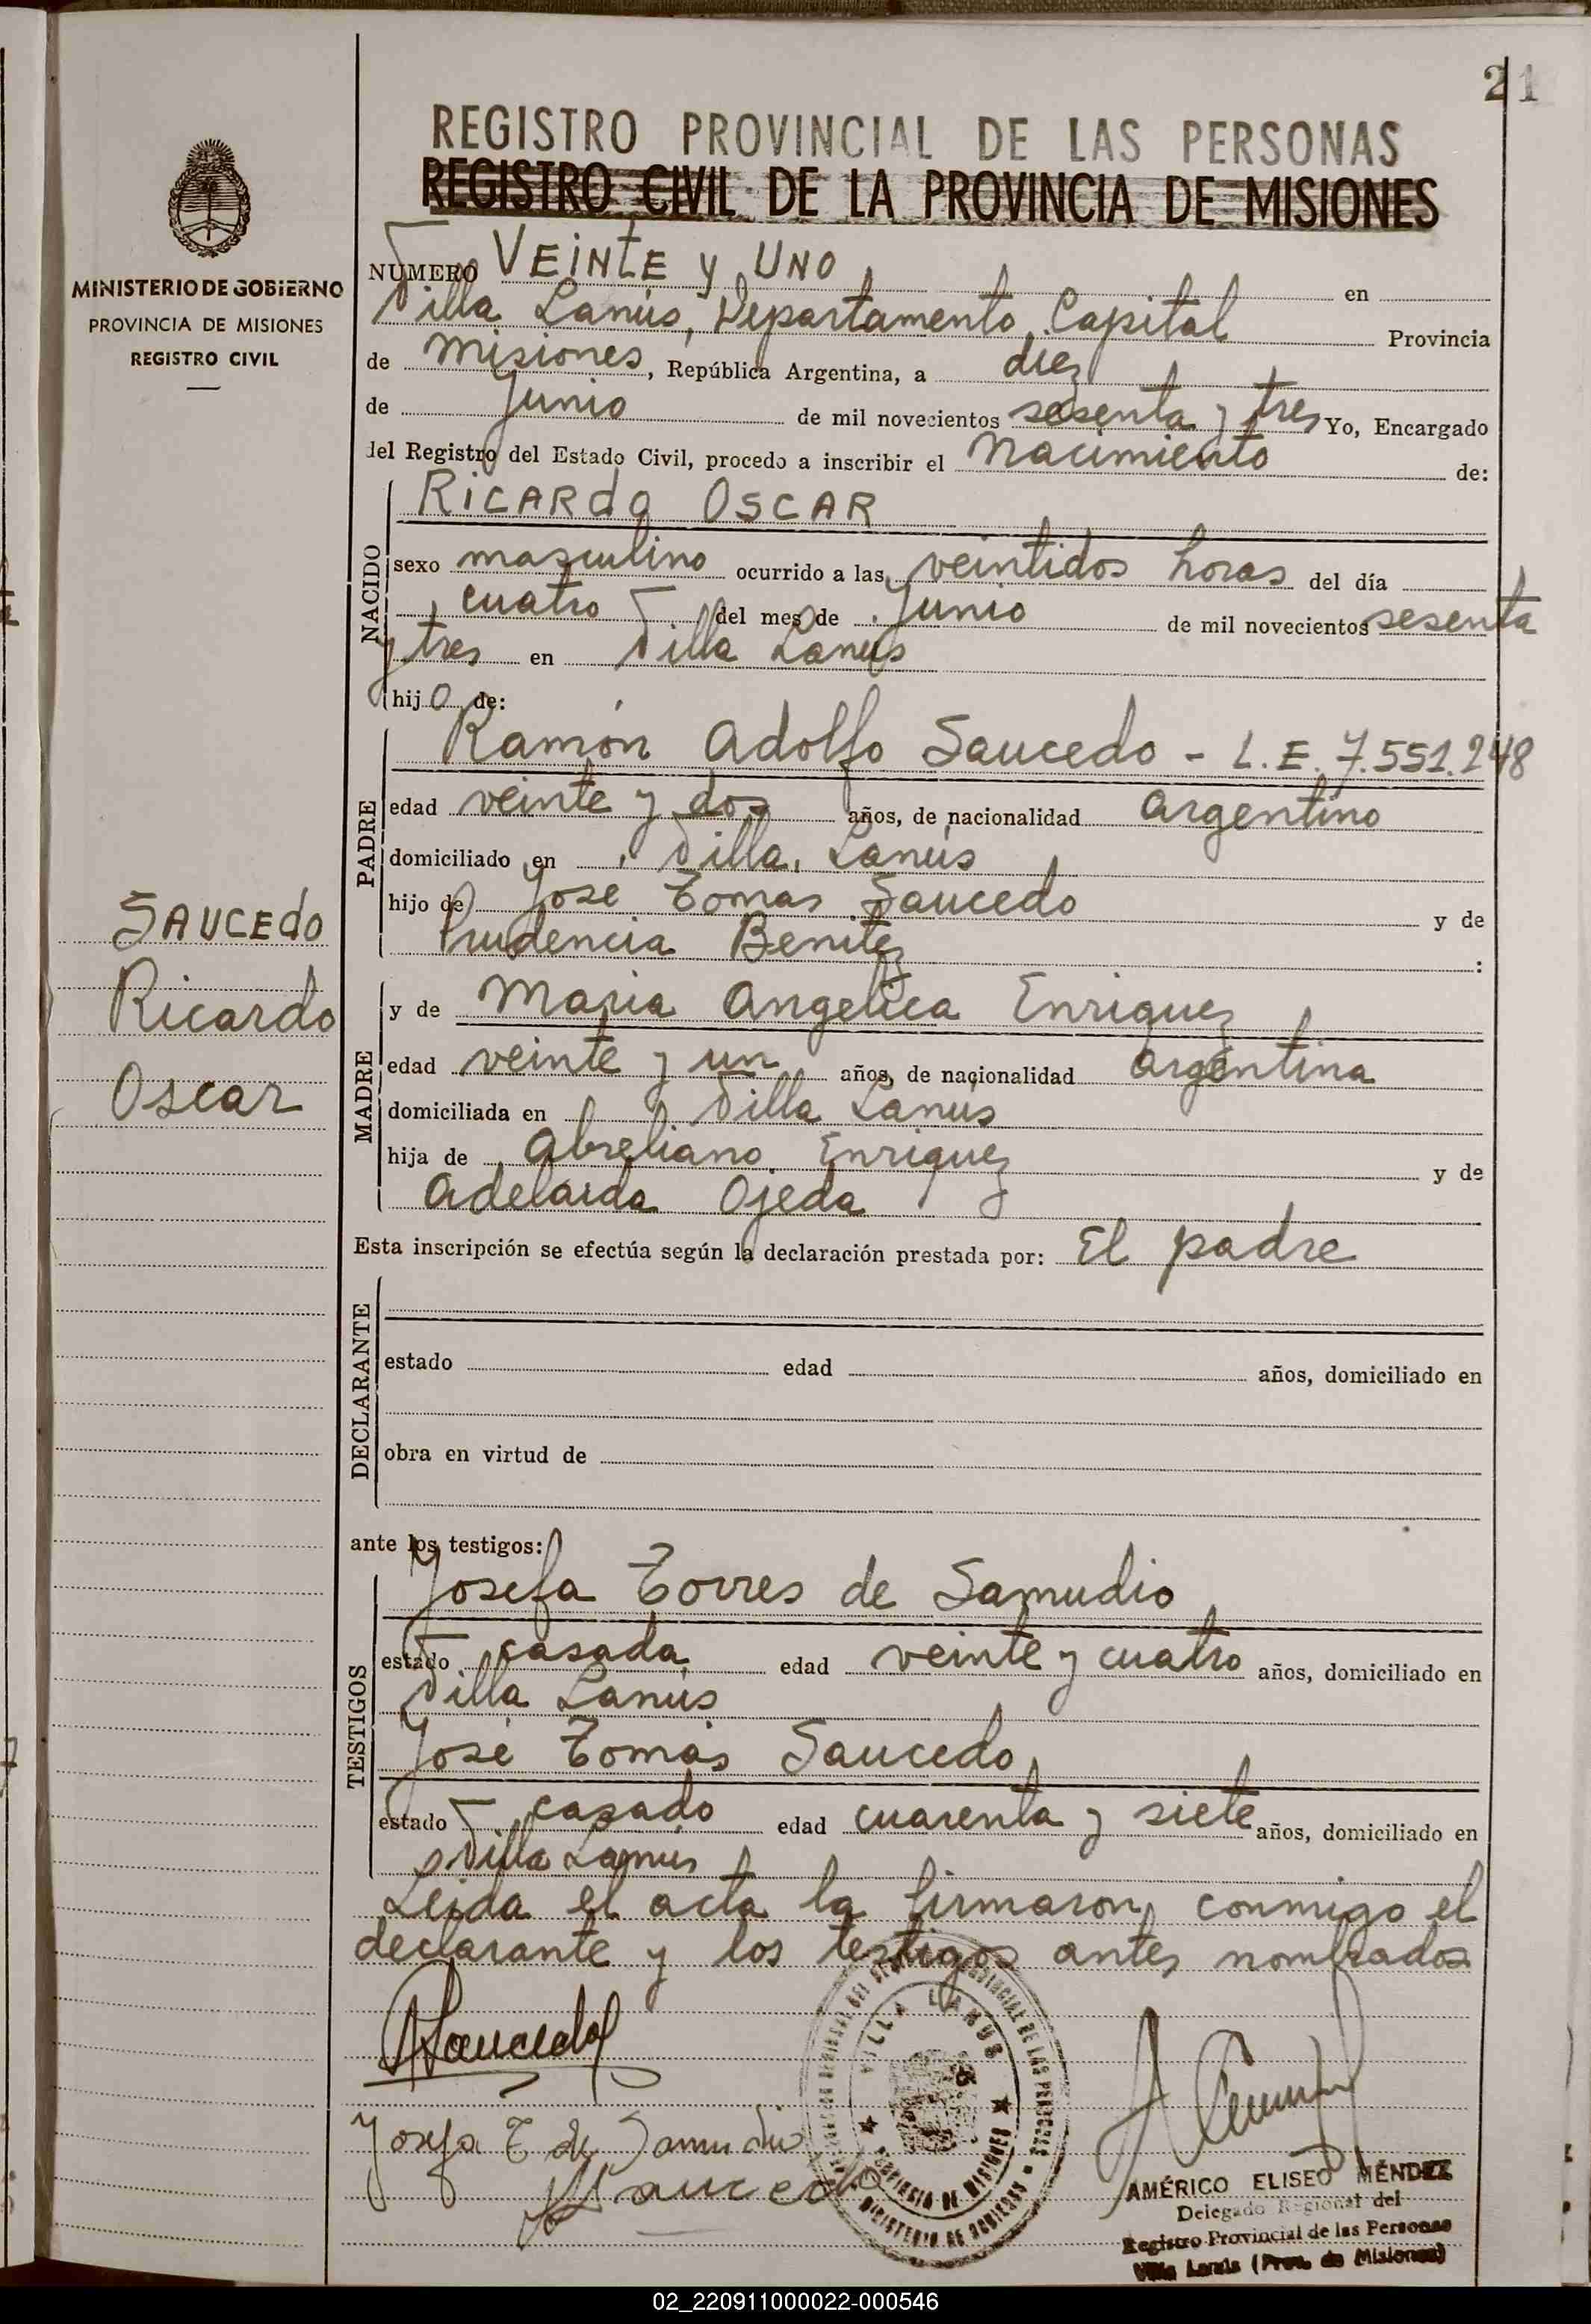 21
REGISTRO PROVINCIAL DE LAS PERSONAS
REGISTRO CIVIL DE LA PROVINCIA DE MISIONES
MINISTERIO DE GOBIERNO
PROVINCIA DE MISIONES
REGISTRO CIVIL
NUMERO VEINTE y UNO en
Villa Lanús, Departamento Capital Provincia
de Misiones, República Argentina, a diez
de Junio de mil novecientos sesenta y tres Yo, Encargado
del Registro del Estado Civil, procedo a inscribir el Nacimiento de:
NACIDO
RICARdo OSCAR
sexo masculino ocurrido a las veintidos horas del día
cuatro del mes de Junio de mil novecientos sesenta
y tres en Villa Lanús
hijo de:
PADRE
Ramón Adolfo Saucedo - L.E. 7.551.248
edad veinte y dos años, de nacionalidad argentino
domiciliado en Villa Lanús
hijo de José Tomas Saucedo y de
Prudencia Benitez :
SAUCEdo
Ricardo
Oscar
MADRE
y de Maria Angelica Enriquez
edad veinte y un años, de nacionalidad argentina
domiciliada en Villa Lanús
hija de Abreliano Enriquez y de
Adelaida Ojeda
Esta inscripción se efectúa según la declaración prestada por: El padre
DECLARANTE
estado edad años, domiciliado en
obra en virtud de
ante los testigos:
TESTIGOS
Josefa Torres de Samudio
estado casada edad veinte y cuatro años, domiciliado en
Villa Lanús
José Tomás Saucedo
estado casado edad cuarenta y siete años, domiciliado en
Villa Lanús
Leida el acta la firmaron conmigo el
declarante y los testigos antes nombrados
Josefa T de Samudio
VILLA LANUS
PROVINCIA DE MISIONES
MINISTERIO DE GOBIERNO
AMÉRICO ELISEO MÉNDEZ
Delegado Regional del
Registro Provincial de las Personas
Villa Lanús (Prov. de Misiones)
02_220911000022-000546